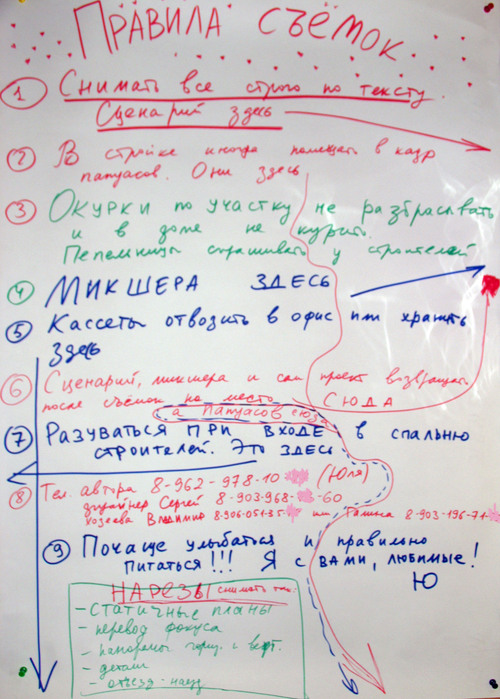 ПРАВИЛА СЪЁМОК
① Снимать все строго по тексту.
Сценарий здесь
② В стройке иногда помещать в кадр
папуасов. Они здесь
③ Окурки по участку не разбрасывать
и в доме не курить.
Пепельницы спрашивать у строителей
④ МИКШЕРА ЗДЕСЬ
⑤ Кассеты отвозить в офис или хранить
здесь
⑥ Сценарий, микшера и сам проект возвращать
после съёмок на место СЮДА
а папуасов сюда
⑦ Разуваться при входе в спальню
строителей. Это здесь
⑧ Тел. автора 8-962-978-10 (Юля)
дизайнер Сергей 8-903-968- -60
хозяева Владимир 8-906-051-35- или Галина 8-903-196-71-
⑨ Почаще улыбаться и правильно
питаться!!! Я с вами, любимые!
Ю
НАРЕЗЫ снимать так:
- статичные планы
- перевод фокуса
- панорамы гориз. и верт.
- детали
- отъезд-наезд